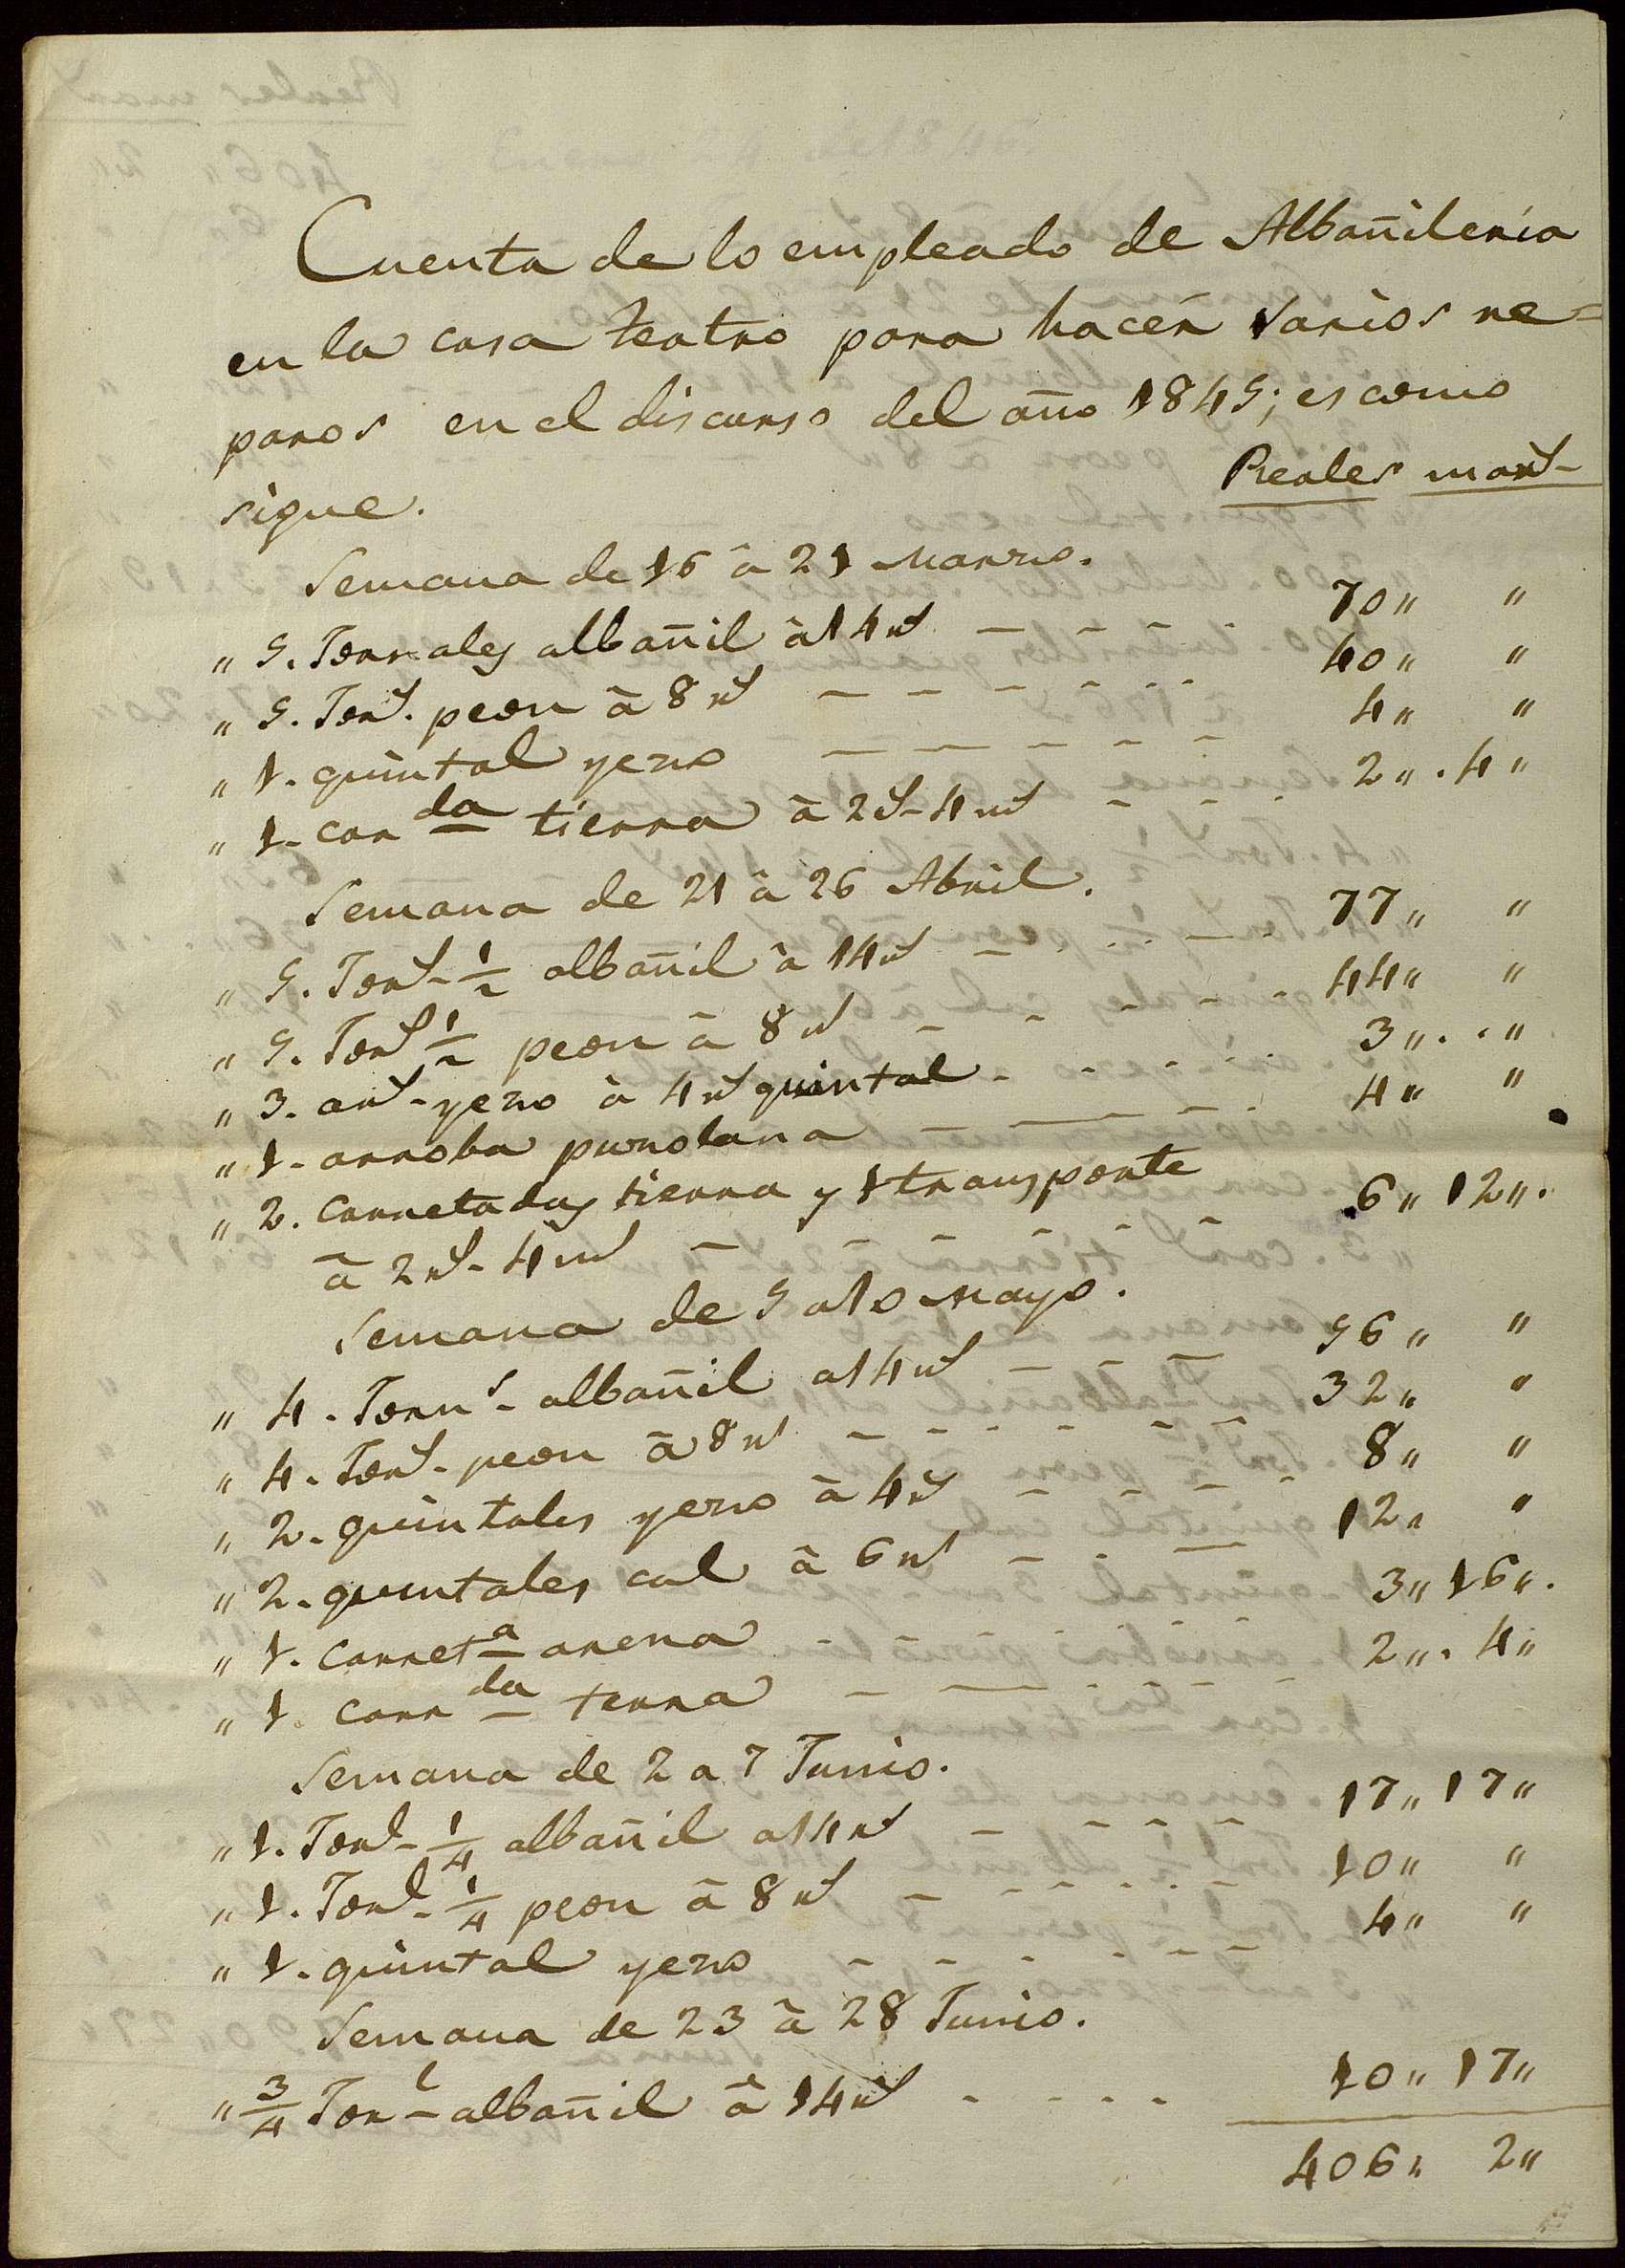 Cuenta de lo empleado de Albañileria
en la casa teatro para hacer varios re=
paros en el discurso del año 1845; es como
sigue.
Reales mars
Semana de 16 à 21 Marzo.
" 5. Jornales albañil à 14 rs - - - - - 70 " "
" 5. Jors. peon à 8 rs - - - - - - 40 " "
" 1. quintal yeso - - - - - - 4 " "
" 1. car da tierra à 2 rs - 4 ms - - - 2 " 4 "
Semana de 21 à 26 Abril.
" 5. Jors - 1/2 albañil à 14 rs - - - - 77 " "
" 5. Jors 1/2 peon à 8 rs - - - - - 44 " "
" 3. ars - yeso à 4 rs quintal - - - - 3 " "
" 1. arroba puzolana - - - - 4 " "
" 2. carretadas tierra y 1 transporte
à 2 rs - 4 ms - - - - - - 6 " 12 "
Semana de 5 a 10 Mayo.
" 4. Jorns - albañil a 14 rs - - - 56 " "
" 4. Jors - peon à 8 rs - - - - - - 32 " "
" 2. quintales yeso à 4 rs - - - - - 8 " "
" 2. quintales cal à 6 rs - - - 12 " "
" 1. carreta arena - - - - - - 3 " 16 "
" 1. carr da terra - - - - - - 2 " 4 "
Semana de 2 a 7 Junio.
" 1. Jorl - 1/4 albañil a 14 rs - - - - 17 " 17 "
" 1. Jorl - 1/4 peon à 8 rs - - - - - - 10 " "
" 1. quintal yeso - - - - - - - 4 " "
Semana de 23 à 28 Junio.
" 3/4 Jorl - albañil à 14 rs - - - - 10 " 17 "
406 " 2 "